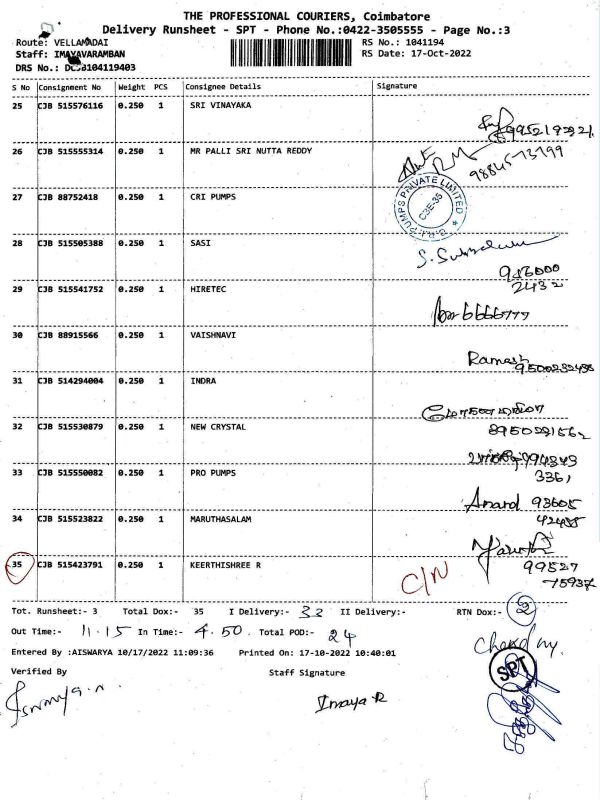 THE PROFESSIONAL COURIERS, Coimbatore
Delivery Runsheet - SPT - Phone No.:0422-3505555 - Page No.:3
Route: VELLAMADAI
RS No.: 1041194
Staff: IMAYAVARAMBAN
RS Date: 17-Oct-2022
DRS No.: 104119403
S No Consignment No Weight PCS Consignee Details Signature
25 CJB 515576116 0.250 1 SRI VINAYAKA
26 CJB 515555314 0.250 1 MR PALLI SRI NUTTA REDDY
98845-73799
27 CJB 88752418 0.250 1 CRI PUMPS
C.R.I. PUMPS PRIVATE LIMITED
C3E-35
28 CJB 515505388 0.250 1 SASI
29 CJB 515541752 0.250 1 HIRETEC
30 CJB 88915566 0.250 1 VAISHNAVI
Ramesh
31 CJB 514294004 0.250 1 INDRA
32 CJB 515530879 0.250 1 NEW CRYSTAL
33 CJB 515550082 0.250 1 PRO PUMPS
3361
Anand 93605
42455
34 CJB 515523822 0.250 1 MARUTHASALAM
35 CJB 515423791 0.250 1 KEERTHISHREE R
99527
75937
C/N
Tot. Runsheet:- 3 Total Dox:- 35 I Delivery:- 33 II Delivery:- RTN Dox:- 2
Out Time:- 11.15 In Time:- 4.50 Total POD:- 24
Entered By :AISWARYA 10/17/2022 11:09:36 Printed On: 17-10-2022 10:40:01
Verified By Staff Signature
SPT
Imaya R